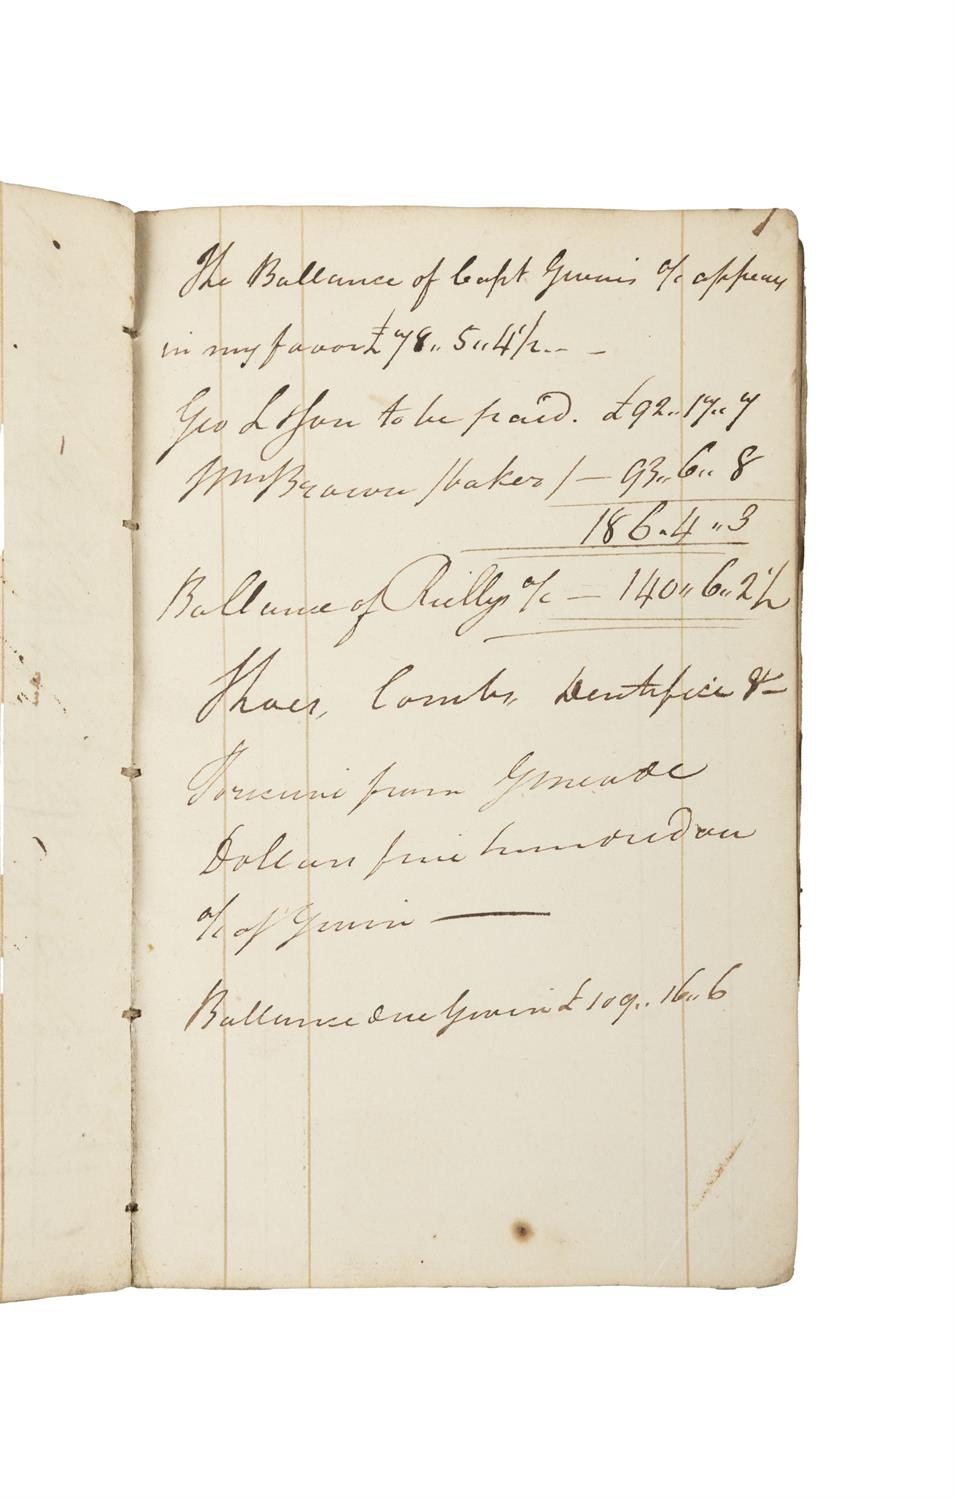 The Ballance of Capt Gwins a/c appears
in my favor £78,, 5,, 4½
Geo L & Son to be paid. £92,, 17,, 7
Wm Brown /baker/ — 93,, 6,, 8
186,, 4,, 3
Ballance of Reillys a/c — 140,, 6,, 2½
Shoes, Combs, Dentifrice &c
from
Dollars five hundred on
a/c of Gwin —
Ballance due Gwin £109,, 16,, 6